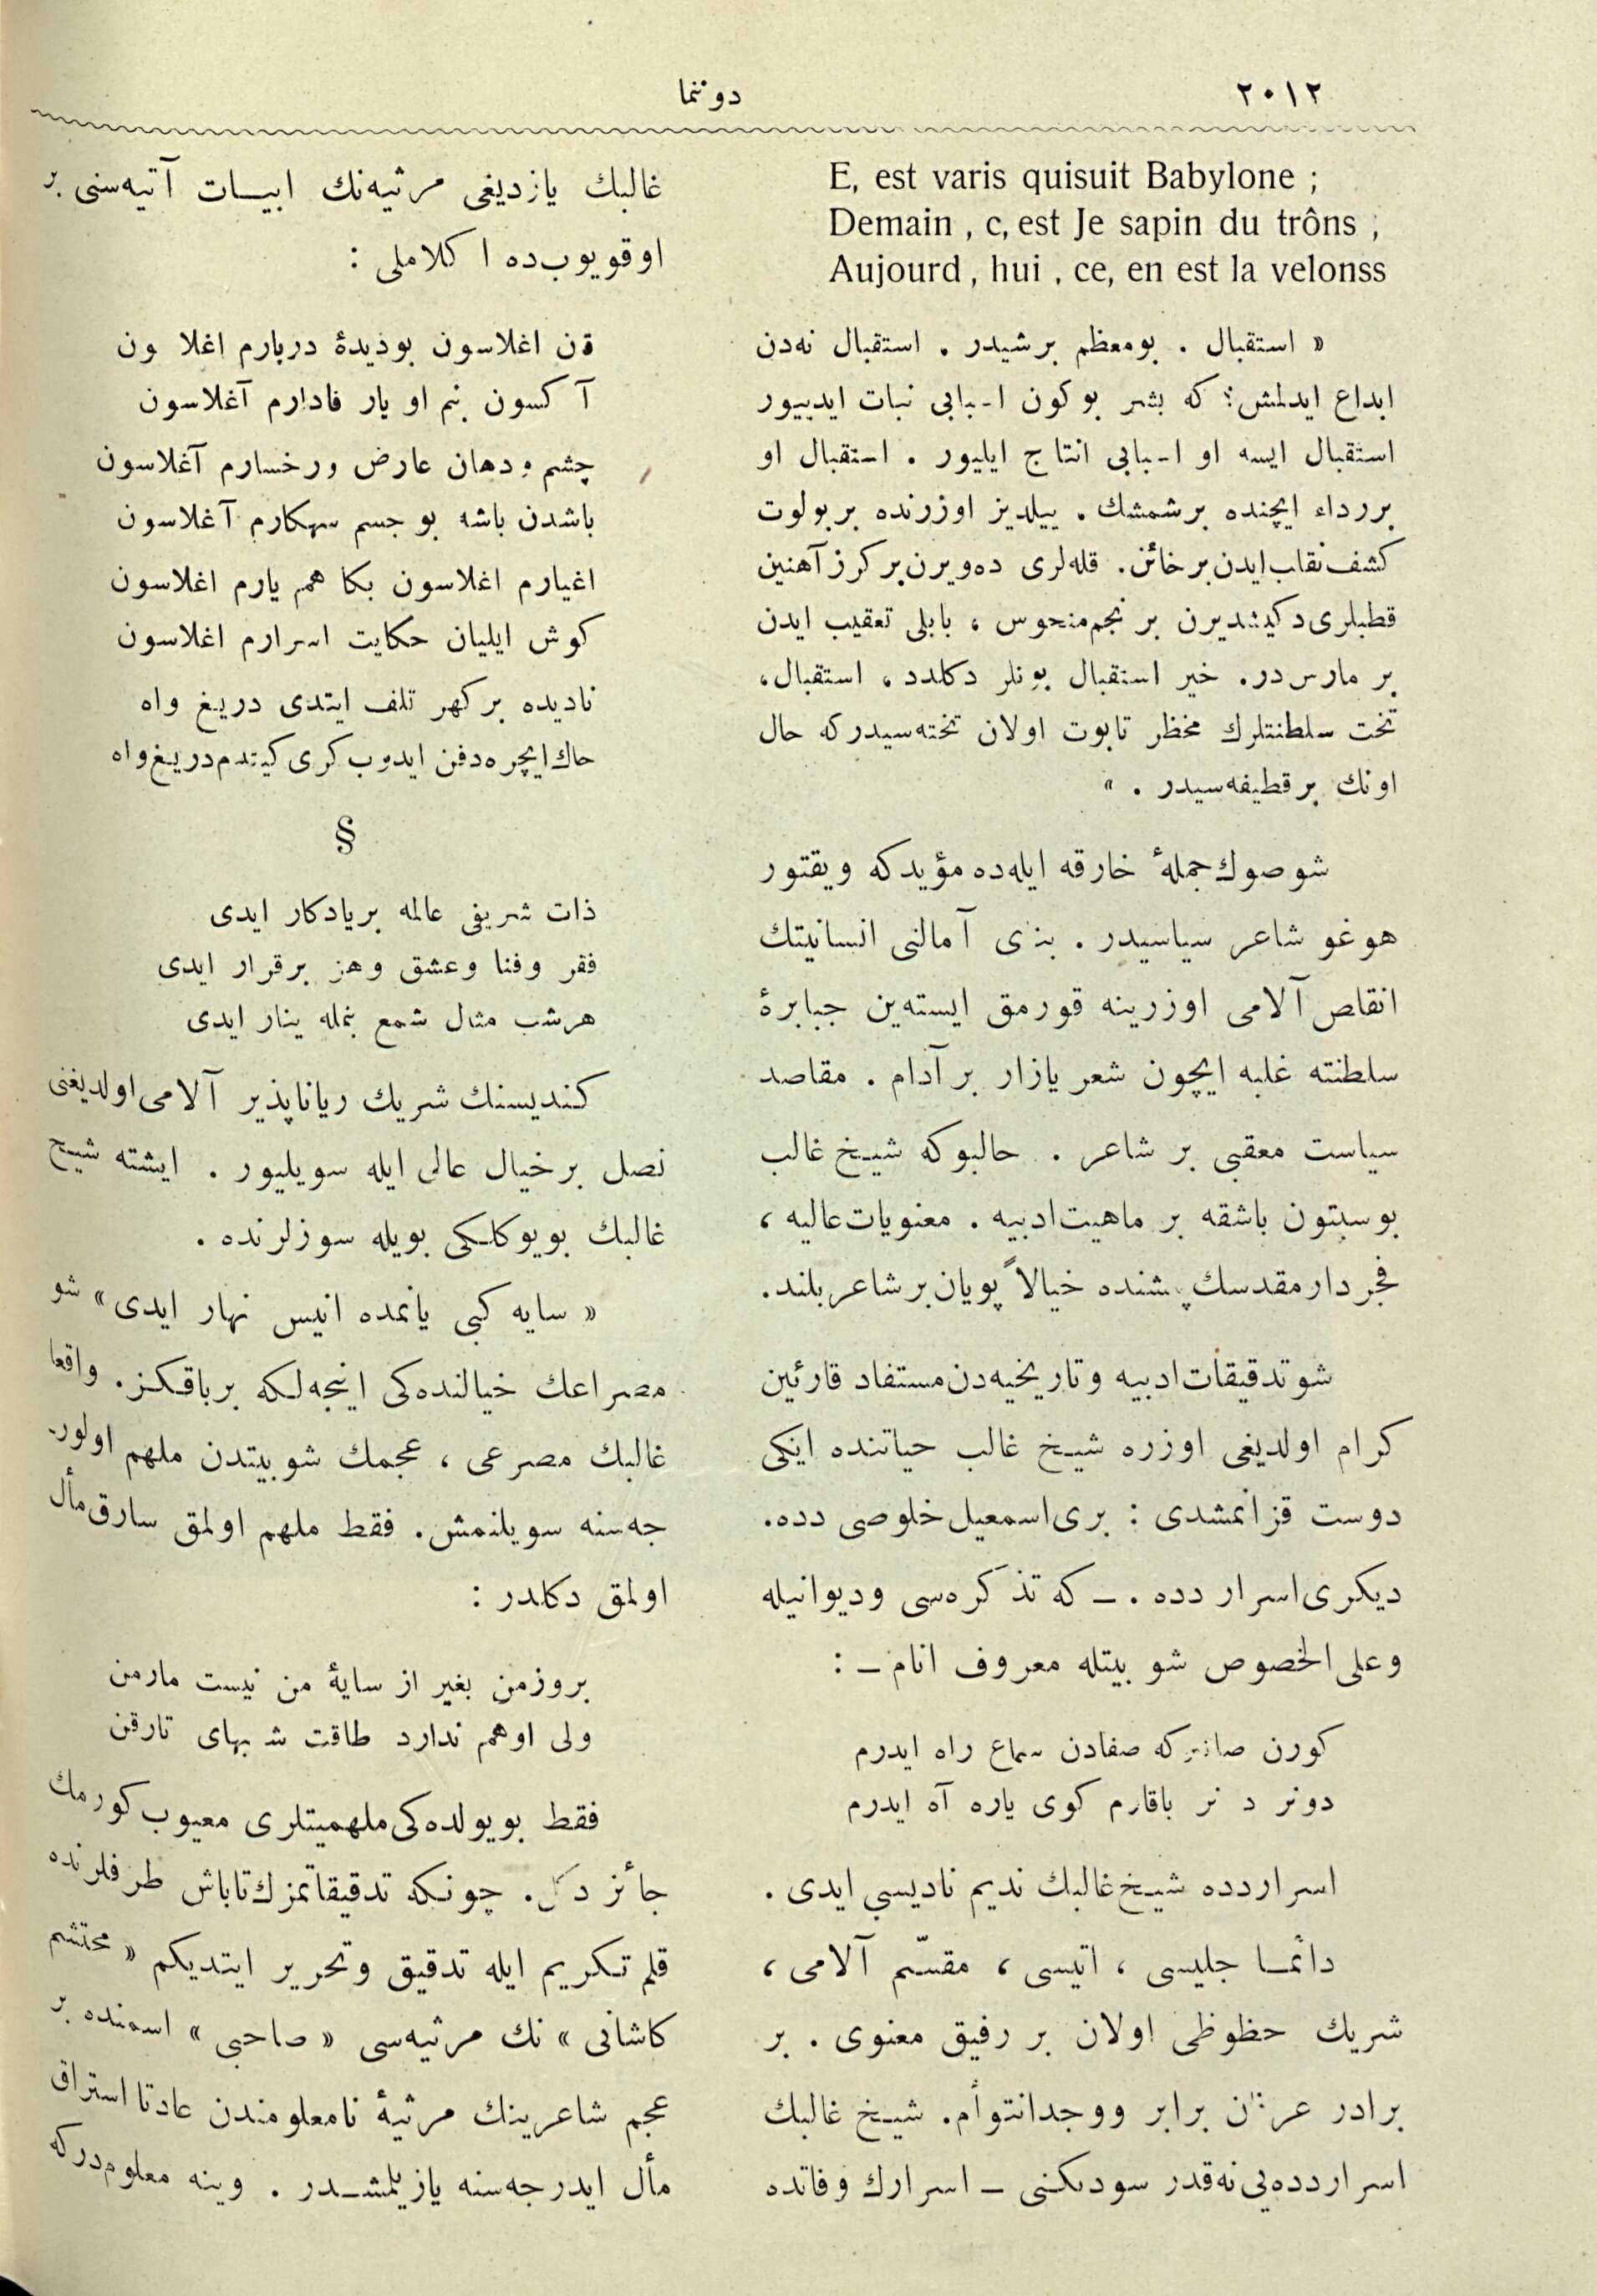 ٢٠١٢
دوننما
E, est varis quisuit Babylone ;
Demain , c, est Je sapin du trôns ;
Aujourd , hui , ce, en est la velonss
« استقبال . بومعظم برشیدر . استقبال نه‌دن
ابداع ایدلمش ؛ كه بشر بوكون اسبابی نبات ایدییور
استقبال ایسه او اسبابی انتاج ایلیور . استقبال او
بررداء ایچنده برشمشك . ییلدیز اوزرنده بربولوت
كشف نقاب ایدن برخائن . قله‌لری ده‌ویرن بركرز آهنین
قطبلری دكیشدیرن بر نجم منحوس ، بابلی تعقیب ایدن
بر مارس در . خیر استقبال بونلر دكلدد ، استقبال ،
تخت سلطنتلرك محظر تابوت اولان تخته‌سیدركه حال
اونك برقطیفه‌سیدر . »
شوصوك جملهٔ خارقه ایله‌ده مؤیدكه ویقتور
هوغو شاعر سیاسیدر . بنی آمالنی انسانیتك
انقاص آلامی اوزرینه قورمق ایسته‌ین جبابرهٔ
سلطنته غلبه ایچون شعر یازار برآدام . مقاصد
سیاست معقبی بر شاعر . حالبوكه شیخ غالب
بوسبتون باشقه بر ماهیت ادبیه . معنویات عالیه ،
فجردار مقدسك پشنده خیالاً پویان برشاعر بلند .
شو تدقیقات ادبیه وتاریخیه‌دن مستفاد قارئین
كرام اولدیغی اوزره شیخ غالب حیاتنده ایكی
دوست قزانمشدی : بری اسمعیل خلوصی دده .
دیكری اسرار دده . ـ كه تذكره‌سی ودیوانیله
وعلی الخصوص شو بیتله معروف انام ـ :
كورن صانركه صفادن سماع راه ایدرم
دونر دونر باقارم كوی یاره آه ایدرم
اسراردده شیخ غالبك ندیم نادیسی ایدی .
دائمـا جلیسی ، اتیسی ، مقسّم آلامی ،
شریك حظوظی اولان بر رفیق معنوی . بر
برادر عرفان برابر ووجدانتوأم . شیخ غالبك
اسراردده‌یی نه‌قدر سودیكنی ـ اسرارك وفاتنده
غالبك یازدیغی مرثیه‌نك ابیـات آتیه‌سنی بر
اوقویوب‌ده ا كلاملی :
قن اغلاسون بودیدهٔ دربارم اغلا ون
آ كسون بنم او یار فادارم آغلاسون
چشم ودهان عارض ورخسارم آغلاسون
باشدن باشه بو جسم سهكارم آغلاسون
اغیارم اغلاسون بكا هم یارم اغلاسون
كوش ایلیان حكایت اسرارم اغلاسون
نادیده بركهر تلف ایتدی دریغ واه
خاك ایچره دفن ایدوب كری كیتدم دریغ واه
§
ذات شریفی عالمه بریادكار ایدی
فقر وفنا وعشق وهنر برقرار ایدی
هرشب مثال شمع بنمله ینار ایدی
كندیسنك شریك ریاناپذیر آلامی اولدیغنی
نصل برخیال عالی ایله سویلیور . ایشته شیخ
غالبك بویوكلكی بویله سوزلرنده .
« سایه كبی یانمده انیس نهار ایدی » شو
مصراعك خیالنده‌كی اینجه‌لكه برباقكز . واقعا
غالبك مصرعی ، عجمك شوبیتدن ملهم اولور
جه‌سنه سویلنمش . فقط ملهم اولمق سارق مأل
اولمق دكلدر :
بروزمن بغیر از سایهٔ من نیست مارمن
ولی اوهم ندارد طاقت شبهای تارقن
فقط بویولده‌كی ملهمیتلری معیوب كورمك
جائز دكل . چونكه تدقیقاتمزك تاباش طرفلرنده
قلم تكریم ایله تدقیق وتحریر ایتدیكم « محتشم
كاشانی » نك مرثیه‌سی « صاحبی » اسمنده بر
عجم شاعرینك مرثیهٔ نامعلومندن عادتا استراق
مأل ایدرجه‌سنه یازیلمشـدر . وینه معلوم‌دركه